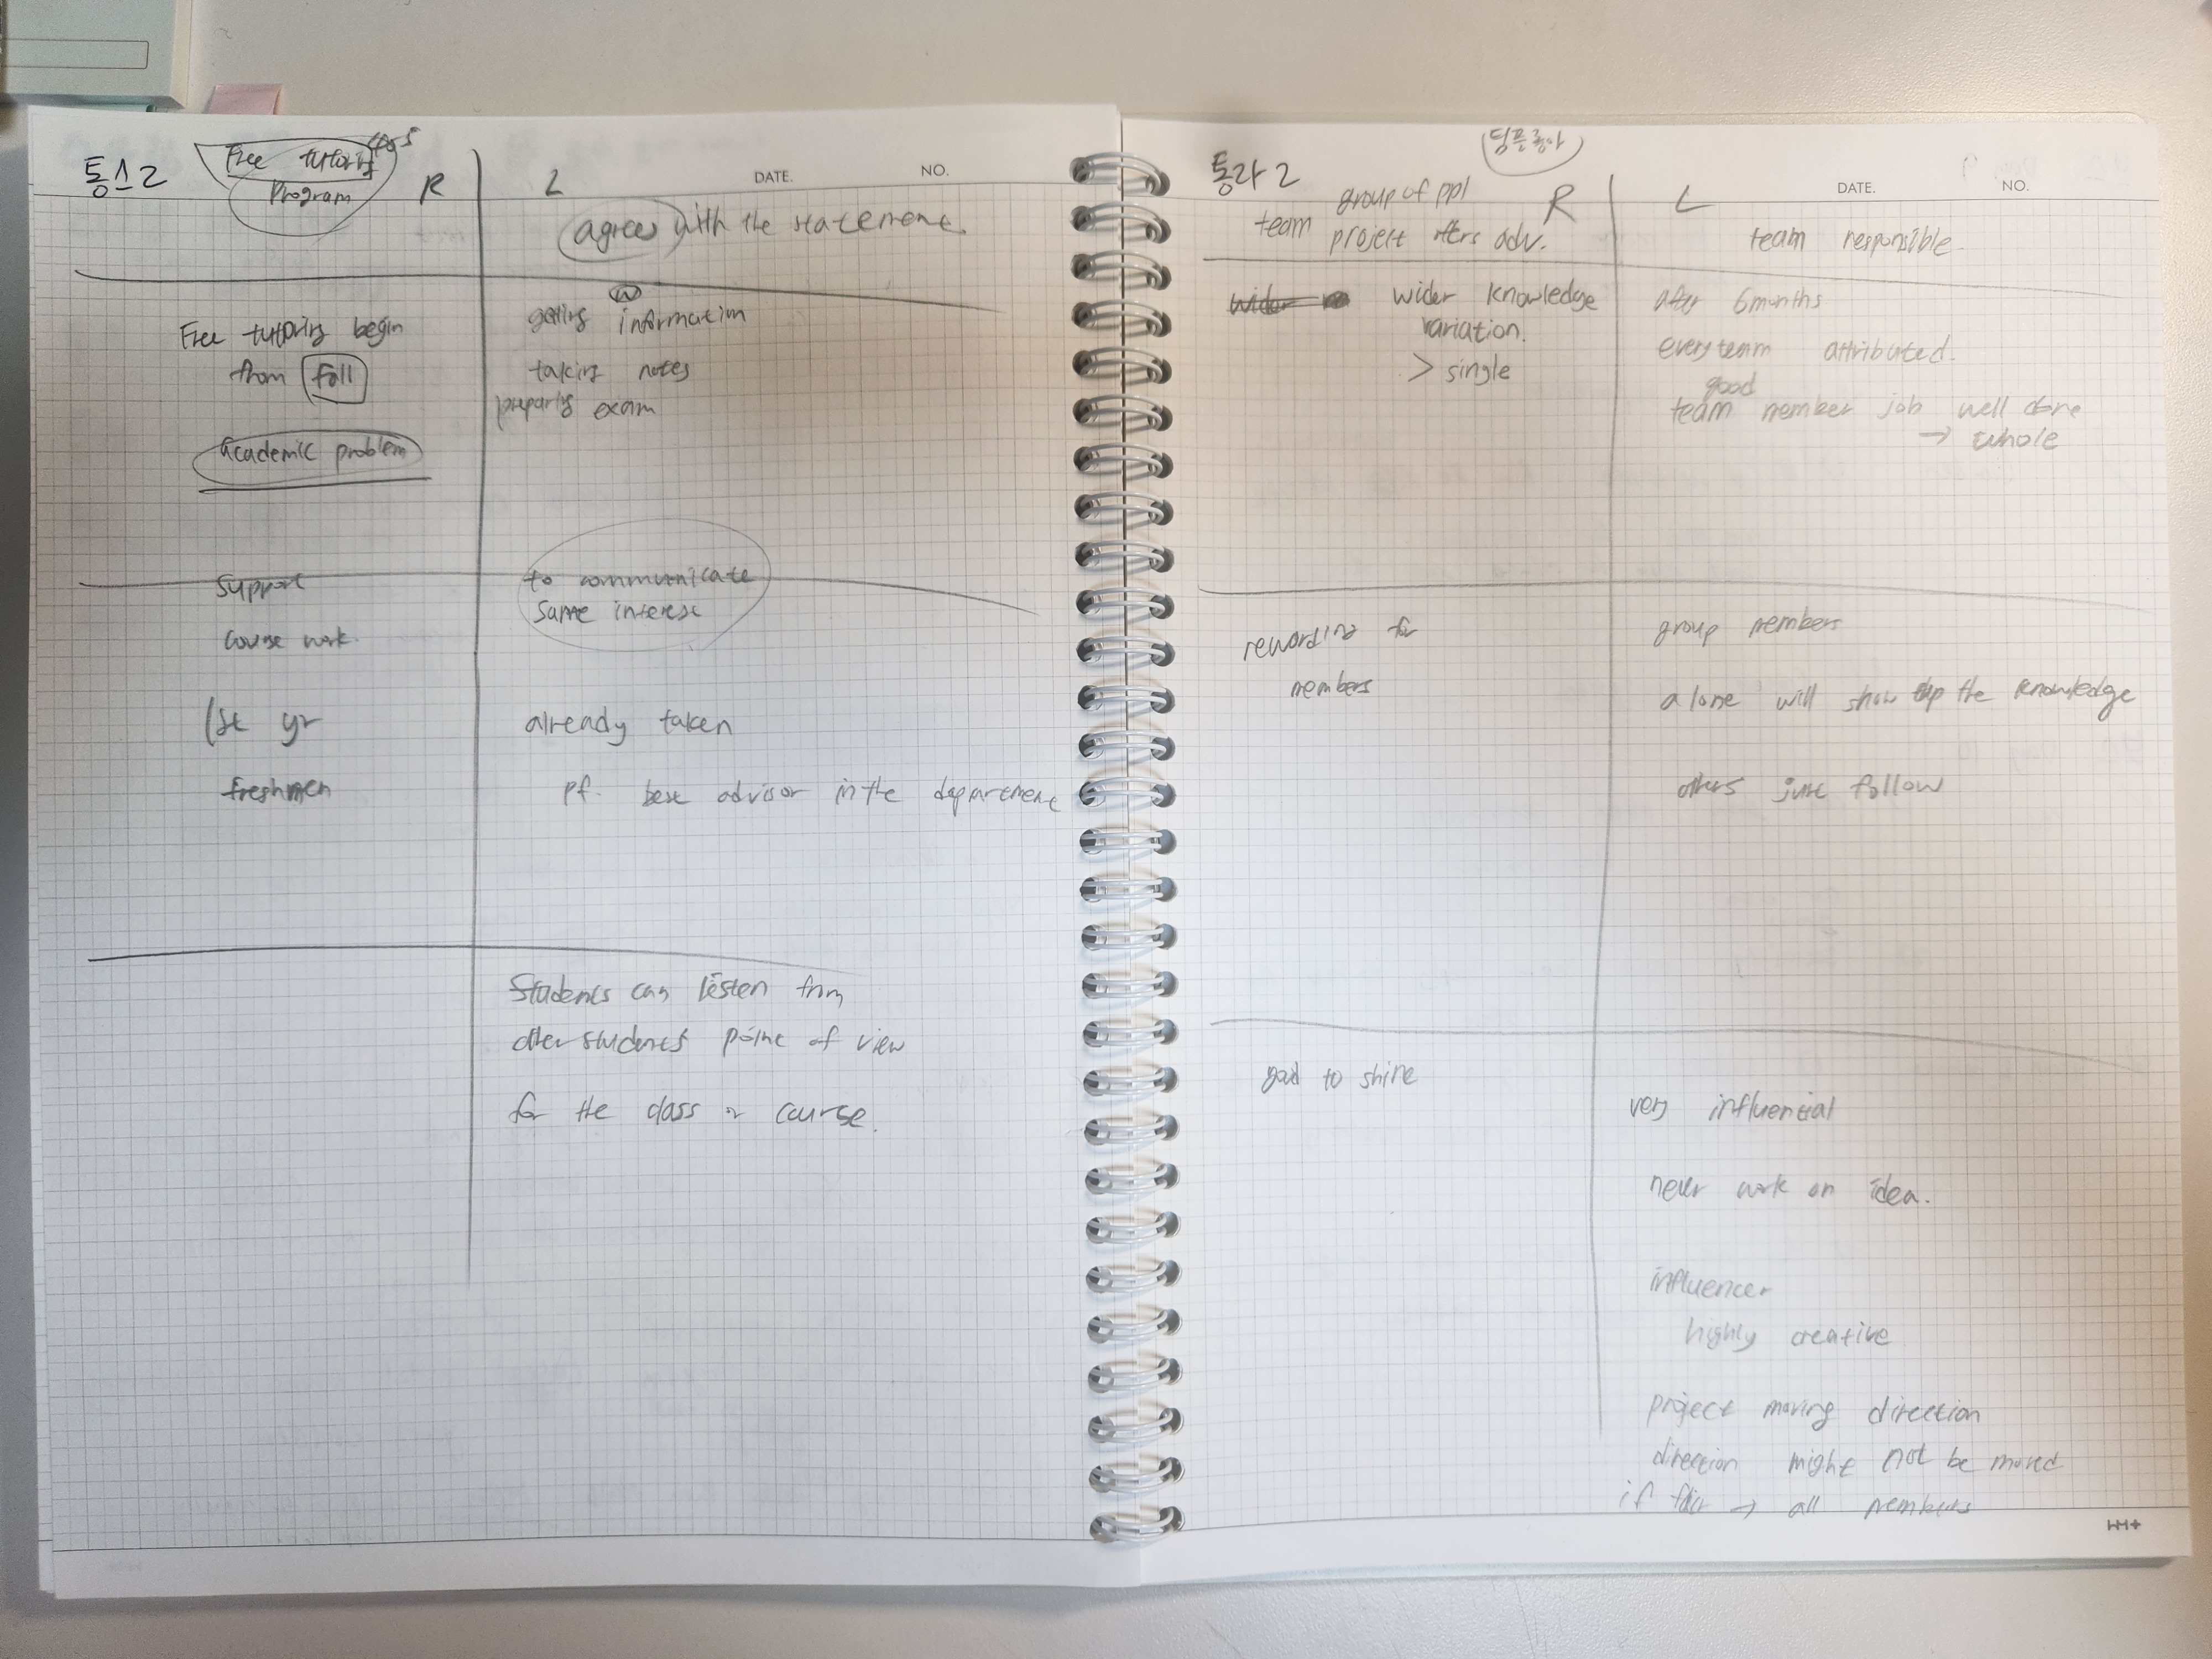 통스2
Free tutoring
Program
R
L
DATE.
NO.
agree with the statement.
Free tutoring begin
from fall
academic problem
getting information
taking notes
preparing exam
support
course work.
1st yr
freshmen
to communicate
same interest
already taken
pf. best advisor in the department
Students can listen from
other students' point of view
for the class or course.
통라2
팀플좋아
group of ppl
team project offers adv.
R
L
DATE.
NO.
team responsible.
wider
wider knowledge
variation.
> single
after 6 months
every team attributed.
good
team member job well done
→ whole
rewarding for
members
group members
alone will show up the knowledge
others just follow
good to shine
very influential
never work on idea.
influencer
highly creative
project moving direction
direction might not be moved
if → all members